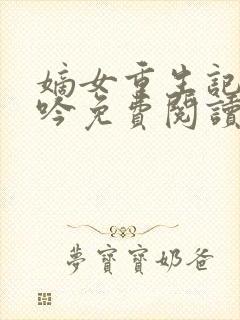 嫡女重生記
吟免費閱讀
夢寶寶奶爸